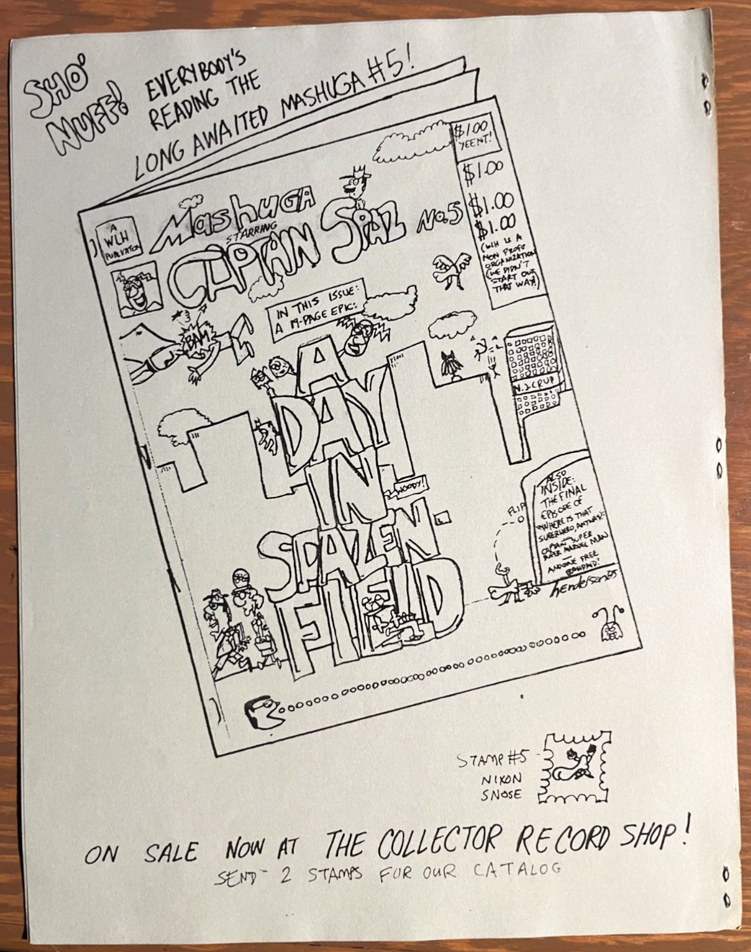 SHO'
NUFF!
EVERYBODY'S
READING THE
LONG AWAITED MASHUGA #5!
A
WLH
PUBLICATION
MASHUGA
STARRING
CAPTAIN SPAZ
No.5
$1.00
YEENT!
$1.00
$1.00
$1.00
(WLH IS A
NON PROFIT
ORGANIZATION
(WE DIDN'T
START OUT
THAT WAY)
BAM
IN THIS ISSUE:
A 19-PAGE EPIC:
A
DAY
IN
SPAZEN-
FIELD
FLIP
ALSO
INSIDE:
THE FINAL
EPISODE OF
WHERE IS THAT
SUPERHERO, ANYWAY?
CAPTAIN SUPER
MARVEL MAN
AND ONE FREE
henderson85
STAMP #5
NIXON
SNOSE
ON SALE NOW AT THE COLLECTOR RECORD SHOP!
SEND 2 STAMPS FOR OUR CATALOG